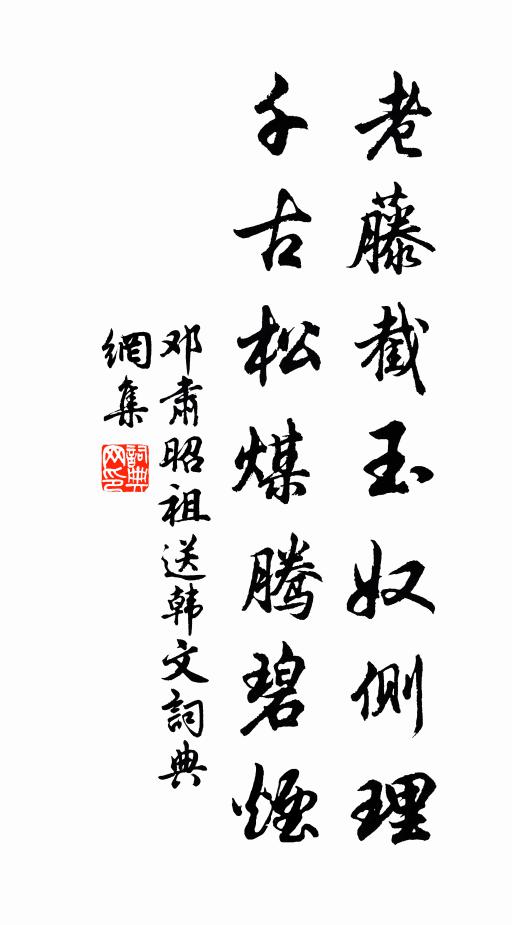 老藤截玉奴側理
千古松煤騰碧煙
邓肅昭祖送韩文詞典
網集
詞典網印